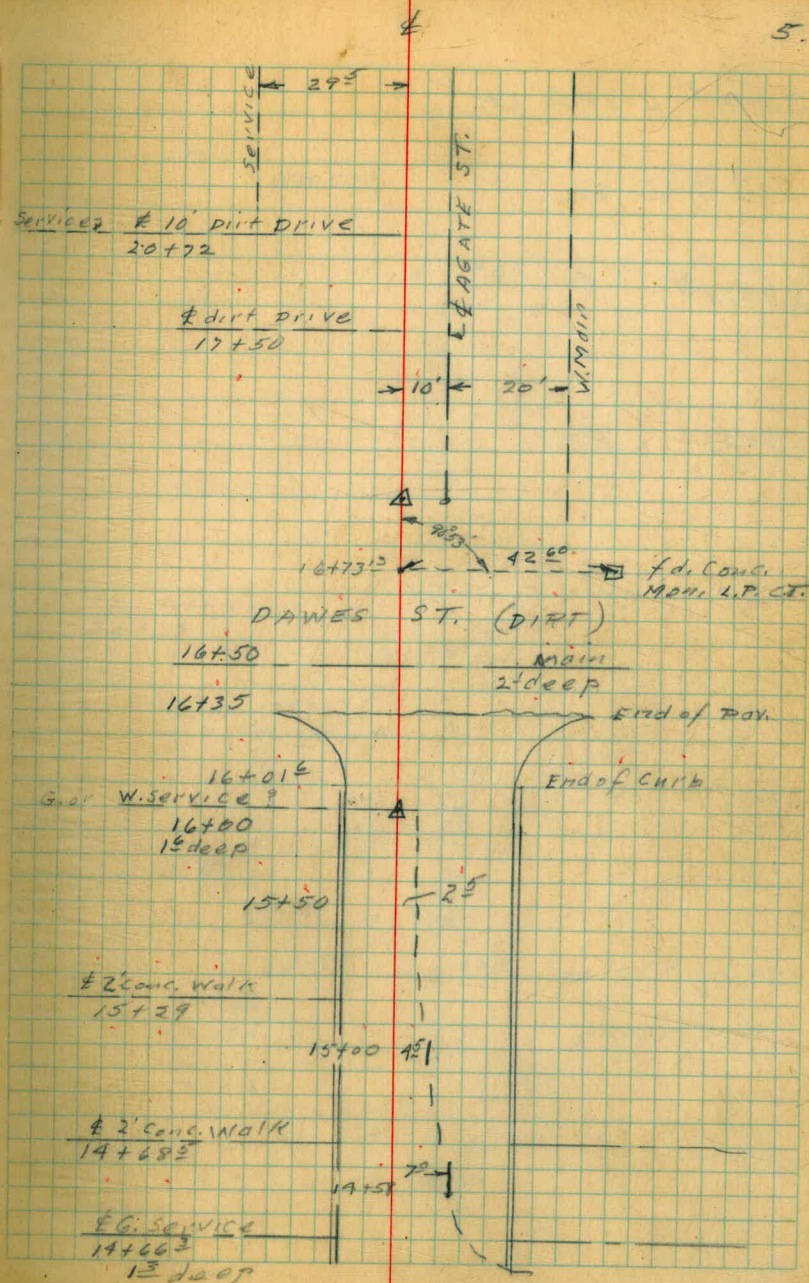 ℄
5.
Service
29⁵
℄ AGATE ST.
W. Main
Services ℄ 10' Dirt Drive
20+72
℄ dirt Drive
17+50
10'
20'
16+73¹³
42⁶⁰
fd. Conc.
Mon. L.P. CT.
DAWES ST. (DIRT)
16+50
Main
2' deep
16+35
End of Pav.
16+01⁶
End of Curb
G. or W. Service ?
16+00
1⁶ deep
15+50
2⁵
℄ 2' Conc. Walk
15+29
15+00
4⁵
℄ 2' Conc. Walk
14+68⁵
7⁰
14+58
℄ G. Service
14+66³
1³ deep